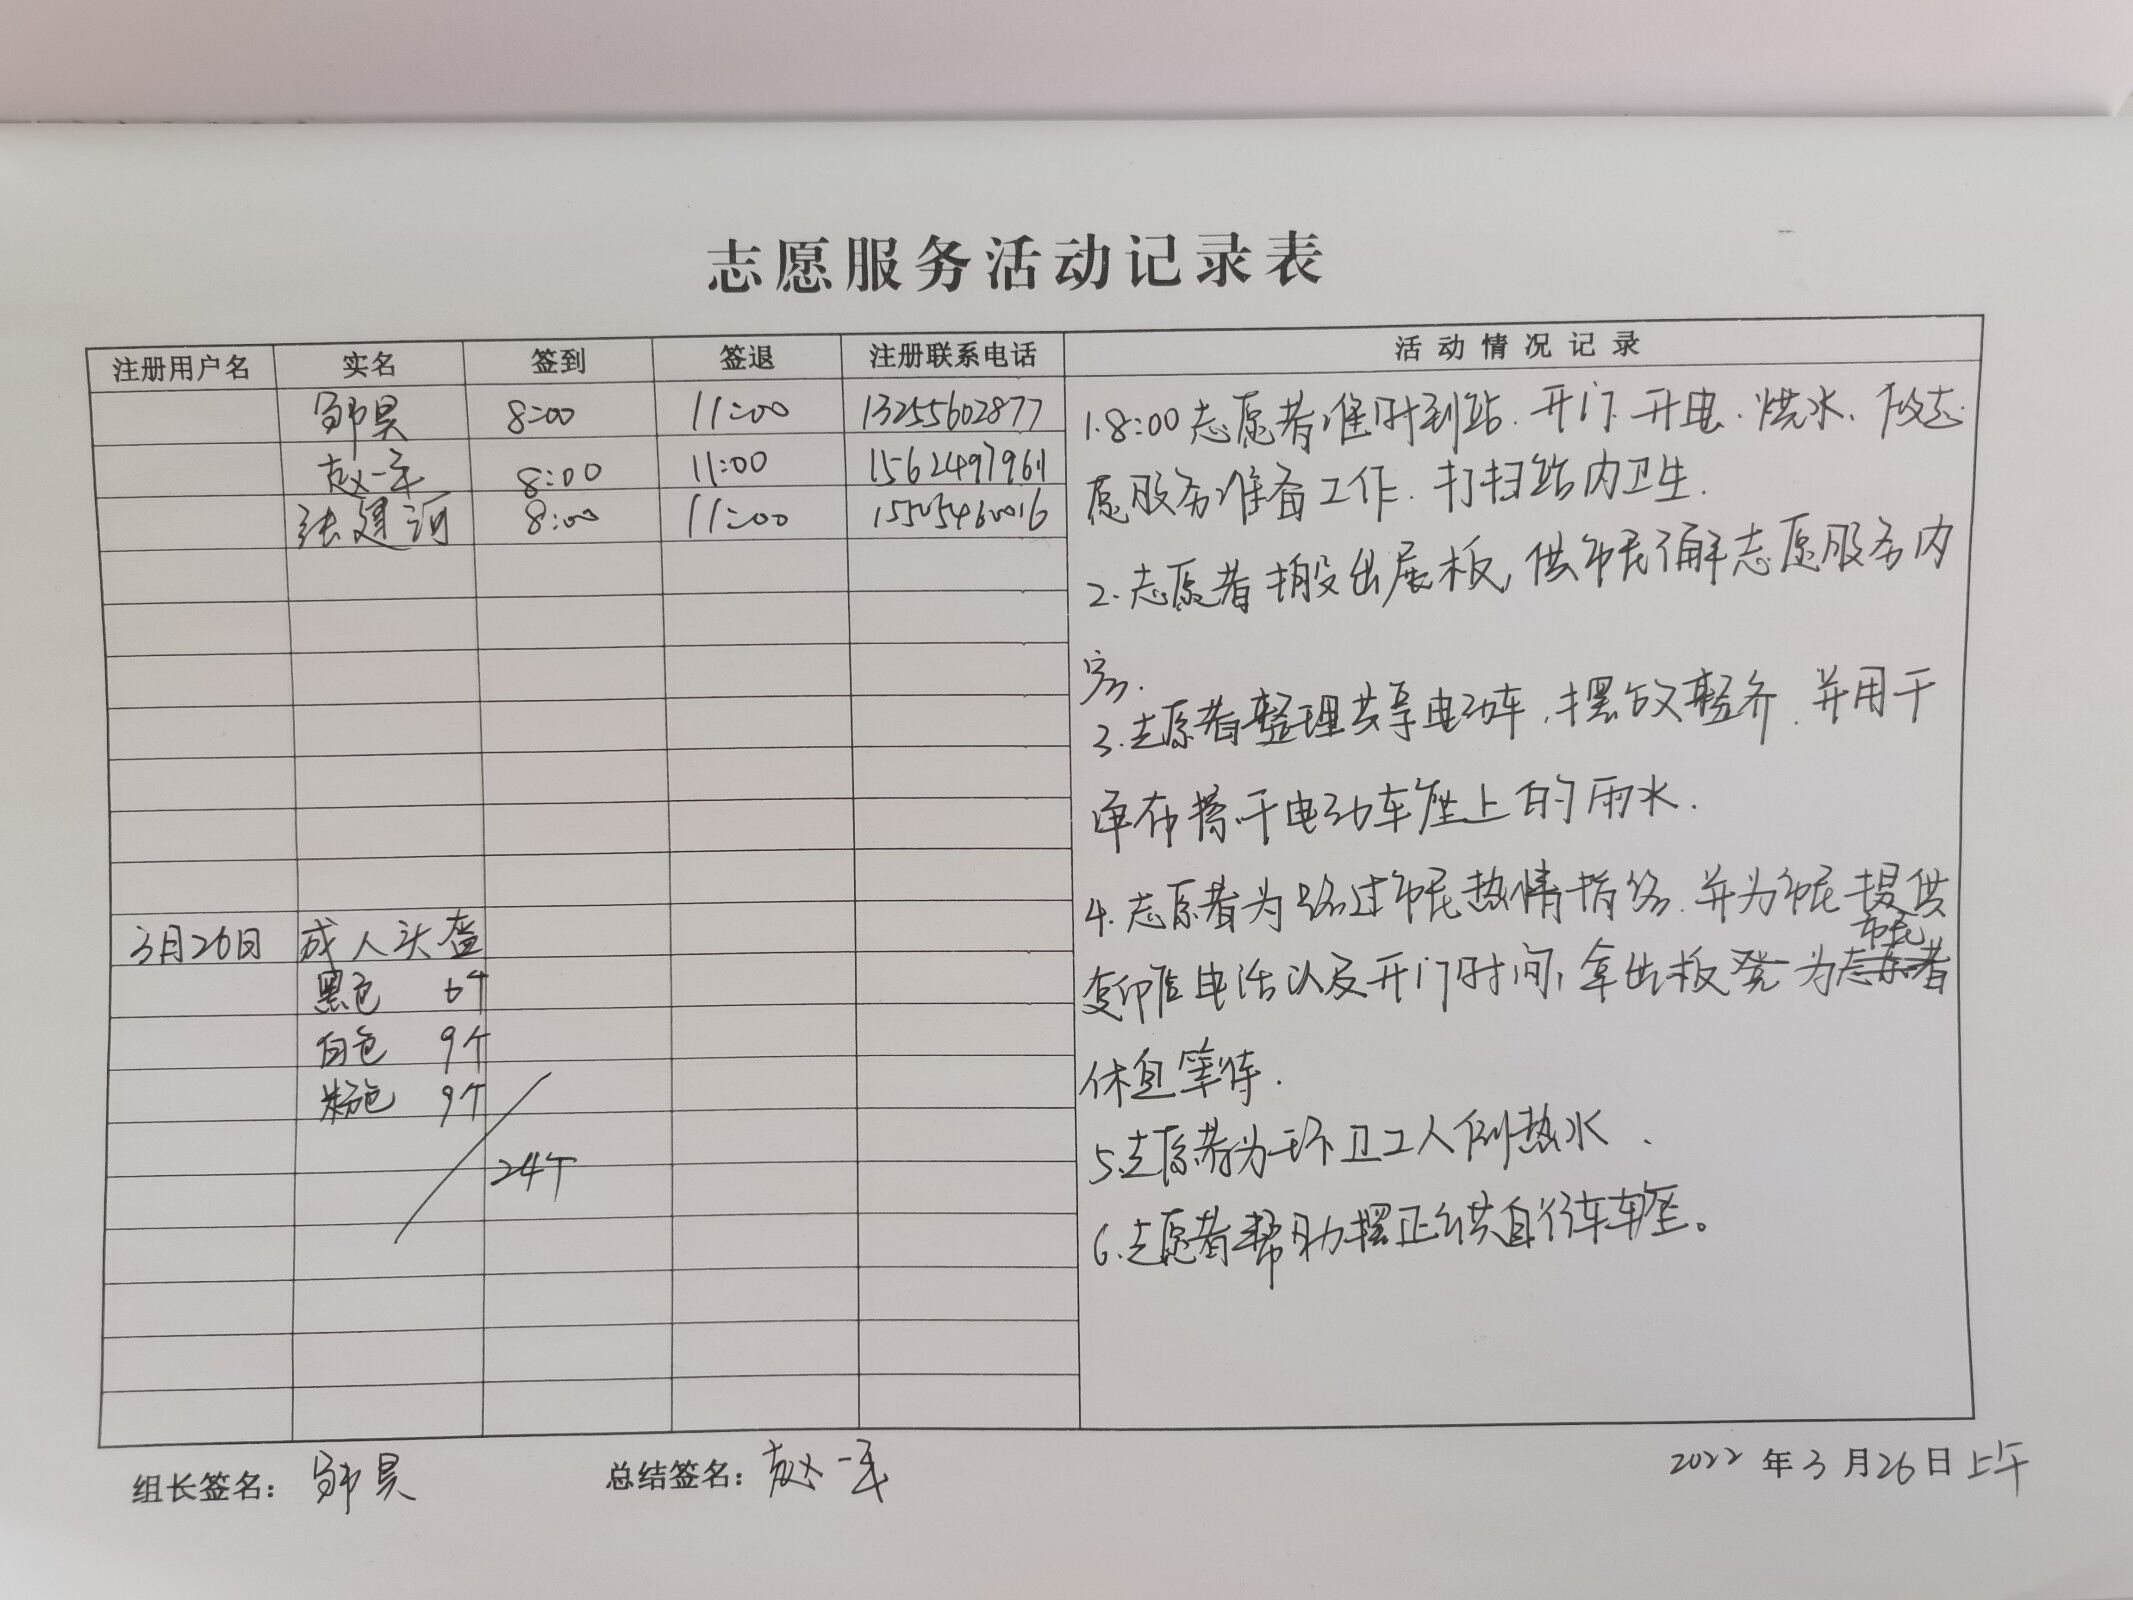 志愿服务活动记录表
注册用户名 实名 签到 签退 注册联系电话 活动情况记录
昊 8:00 11:00 13255602877
赵一 8:00 11:00 15624979611
张建河 8:00 11:00 15505460016
3月26日 成人头盔
黑色 6个
白色 9个
粉色 9个
24个
1.8:00志愿者准时到站.开门.开电.烧水、做志
愿服务准备工作.打扫站内卫生.
2.志愿者搬出展板,供市民了解志愿服务内
容.
3.志愿者整理共享电动车,摆放整齐.并用干
净布擦干电动车座上的雨水.
4.志愿者为路过市民热情指路.并为市民提供
市民
复印店电话以及开门时间,拿出板凳为志愿者
休息等待.
5.志愿者为环卫工人倒热水.
6.志愿者帮助摆正公共自行车车座。
组长签名: 昊 总结签名: 赵一
2022年3月26日上午